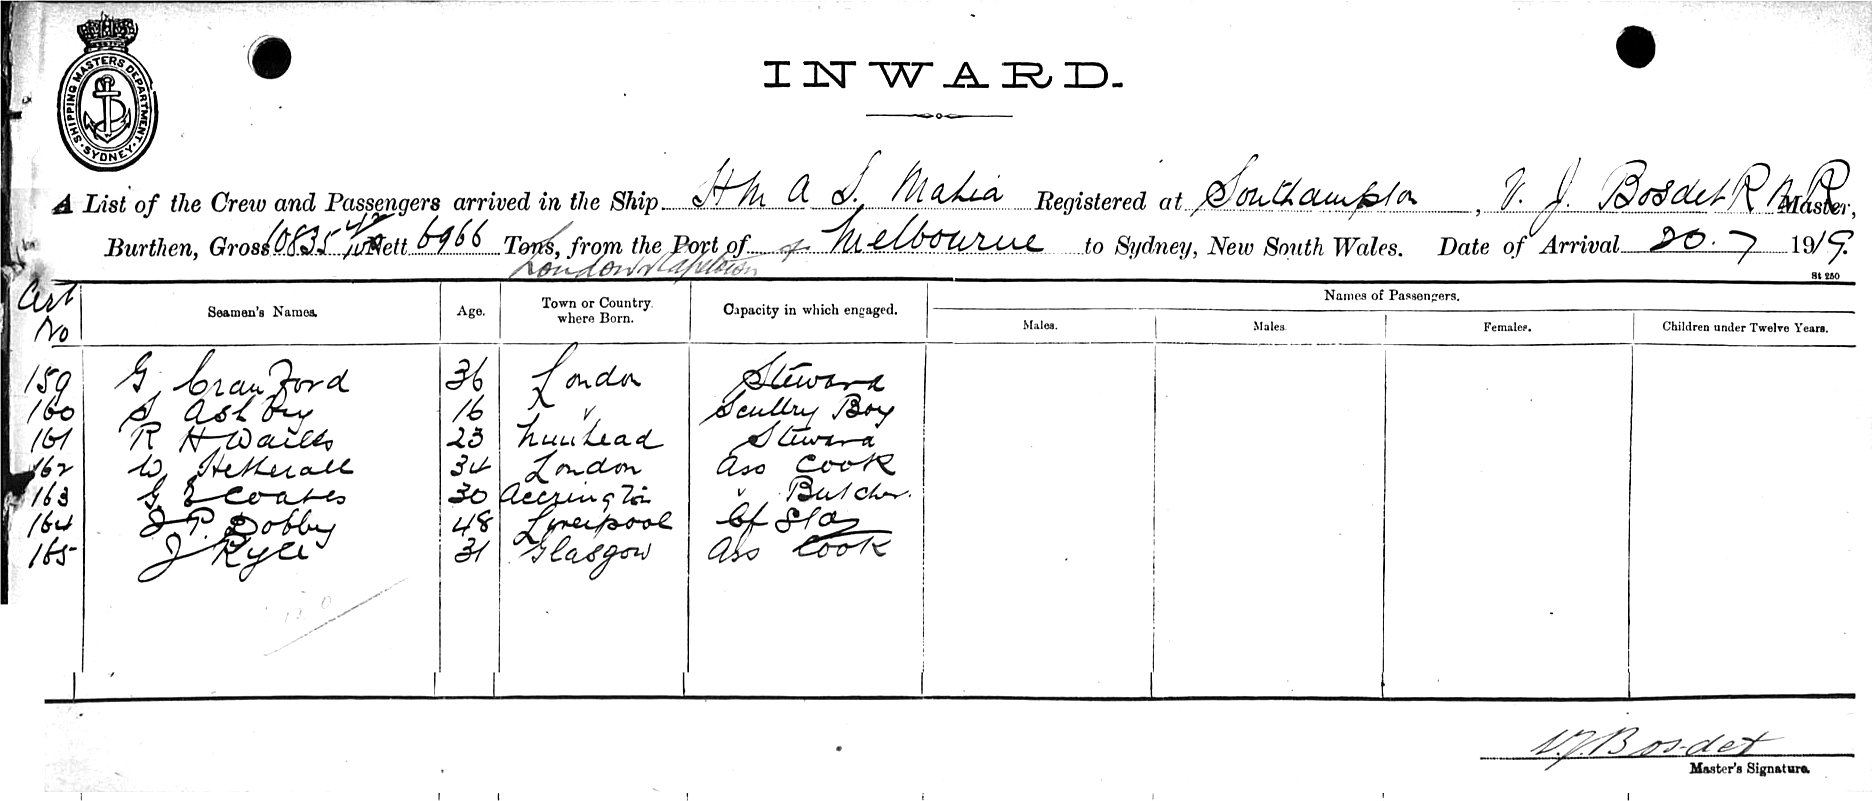 SHIPPING MASTERS DEPARTMENT. SYDNEY
INWARD.
A List of the Crew and Passengers arrived in the Ship H M A S. Mahia Registered at Southampton, V. J. Bosdet R N R Master,
Burthen, Gross 10835 42/100 Nett 6966 Tons, from the Port of Melbourne to Sydney, New South Wales. Date of Arrival 20. 7 1919.
London & Capetown
St 250
Cert No Seamen's Names. Age. Town or Country where Born. Capacity in which engaged. Names of Passengers.
Males. Males. Females. Children under Twelve Years.
159 G Crawford 36 London Steward
160 S Ashby 16 " Scullry Boy
161 R H 23 Steward
162 W Hetherall 34 London Ass Cook
163 G E Coates 30 Accrington " Butcher.
164 J P. Dobby 48 Liverpool
165 J Kyle 31 Glasgow Ass Cook
V. J. Bosdet
Master's Signature.